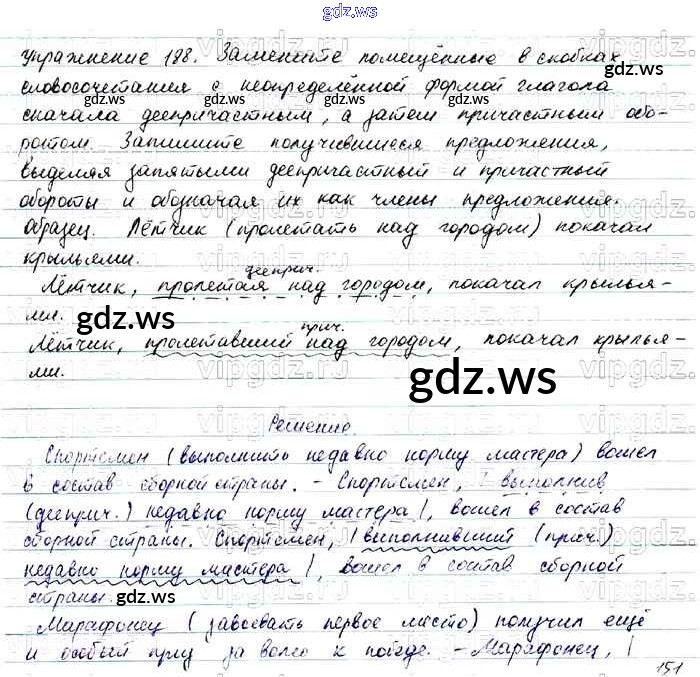 www.gdz.ws
Упражнение 188. Замените помещённые в скобках
словосочетания с неопределённой формой глагола
сначала деепричастным, а затем причастным обо-
ротом. Запишите получившиеся предложения,
выделяя запятыми деепричастный и причастный
обороты и обозначая их как члены предложения.
Образец. Лётчик (пролетать над городом) покачал
крыльями.
дееприч.
Лётчик, пролетая над городом, покачал крылья-
ми.
прич.
Лётчик, пролетавший над городом, покачал крылья-
ми.
Решение
Спортсмен (выполнить недавно норму мастера) вошел
в состав сборной страны. - Спортсмен, | выполнив
(дееприч.) недавно норму мастера |, вошел в состав
сборной страны. Спортсмен, | выполнивший (прич.)
недавно норму мастера |, вошел в состав сборной
страны.
Марафонец (завоевать первое место) получил ещё
и особый приз за волю к победе. - Марафонец, |
151